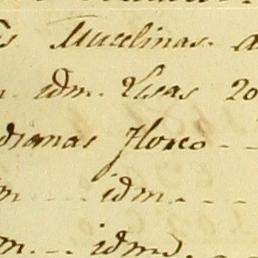 Muselinas. a
idm. Lisas 20
dianas floreo - -
m - - idm. - - -
m. - - idmd.